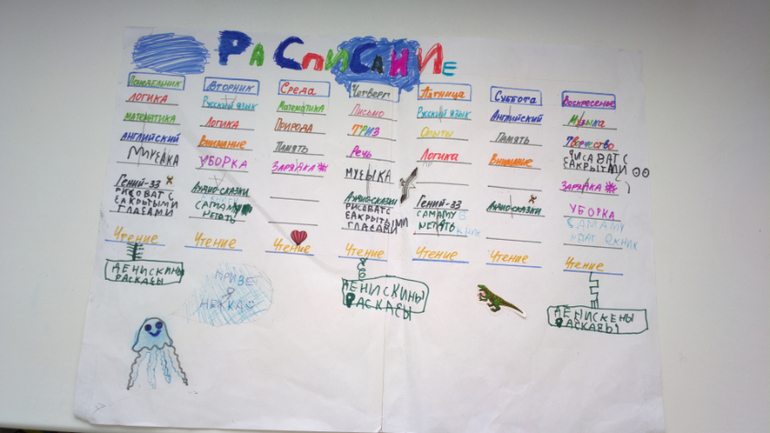 РАСПИСАНИЕ
Понедельник
ЛОГИКА
МАТЕМАТИКА
АНГЛИЙСКИЙ
МУЗЫКА
ГЕНИЙ-33
РИСОВАТ С
ЗАКРЫТЫМИ
ГЛАЗАМИ
Чтение
ДЕНИСКИНЫ
РАСКАЗЫ
Вторник
Русский язык
ЛОГИКА
Внимание
УБОРКА
Аудио-сказки
САМАМУ
ЧЕТАТЬ
Чтение
ПРИВЕ
Среда
Математика
Природа
Память
ЗАРЯДКА
Чтение
Четверг
Письмо
ТРИЗ
Речь
МУЗЫКА
Аудио-сказки
РИСОВАТ С
ЗАКРЫТЫМИ
ГЛАЗАМИ
Чтение
ДЕНИСКИНЫ
РАСКАСЫ
Пятница
Русский язык
Опыты
Логика
Гений-33
САМАМУ
Чтение
Суббота
Английский
Память
Внимание
Аудио-сказки
Чтение
Воскресение
Музыка
Творчество
РИСОВАТ С
ЗАКРЫТЫМИ
ЗАРЯДКА
УБОРКА
САМАМУ
Чтение
ДЕНИСКЕНЫ
РАСКАЗЫ